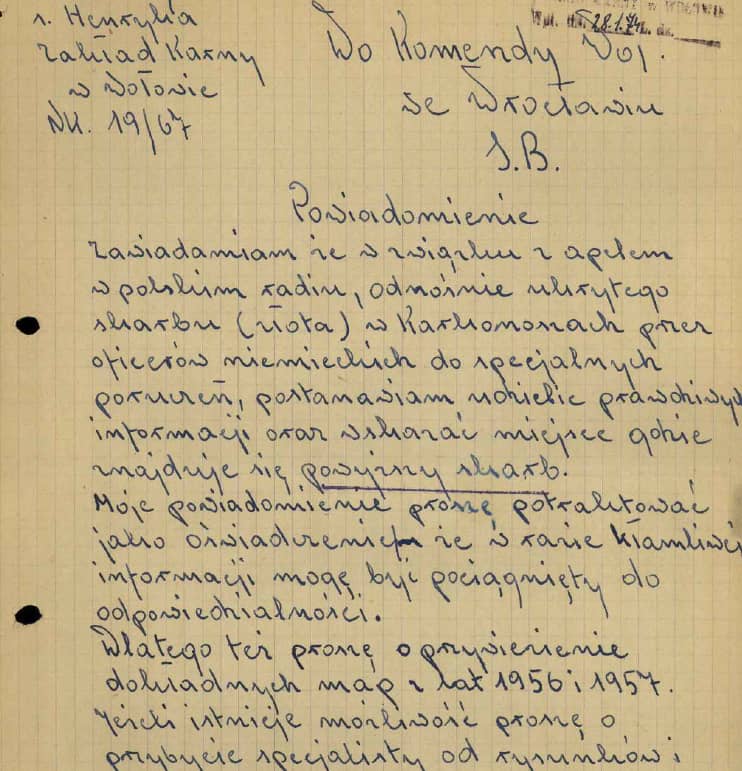 s. Henryka
Zakład Karny
w Wołowie
NK. 19/67
w
28.1.74
Do Komendy Woj.
we Wrocławiu
S.B.
Powiadomienie
Zawiadamiam że w związku z apelem
w polskim radiu, odnośnie ukrytego
skarbu (złota) w Karkonoszach przez
oficerów niemieckich do specjalnych
poruczeń, postanawiam udzielić prawdziwych
informacji oraz wskazać miejsce gdzie
znajduje się powyższy skarb.
Moje powiadomienie proszę potraktować
jako oświadczenie że w razie kłamliwej
informacji mogę być pociągnięty do
odpowiedzialności.
Dlatego też proszę o przywiezienie
dokładnych map z lat 1956 i 1957.
Jeśli istnieje możliwość proszę o
przybycie specjalisty od rysunków i